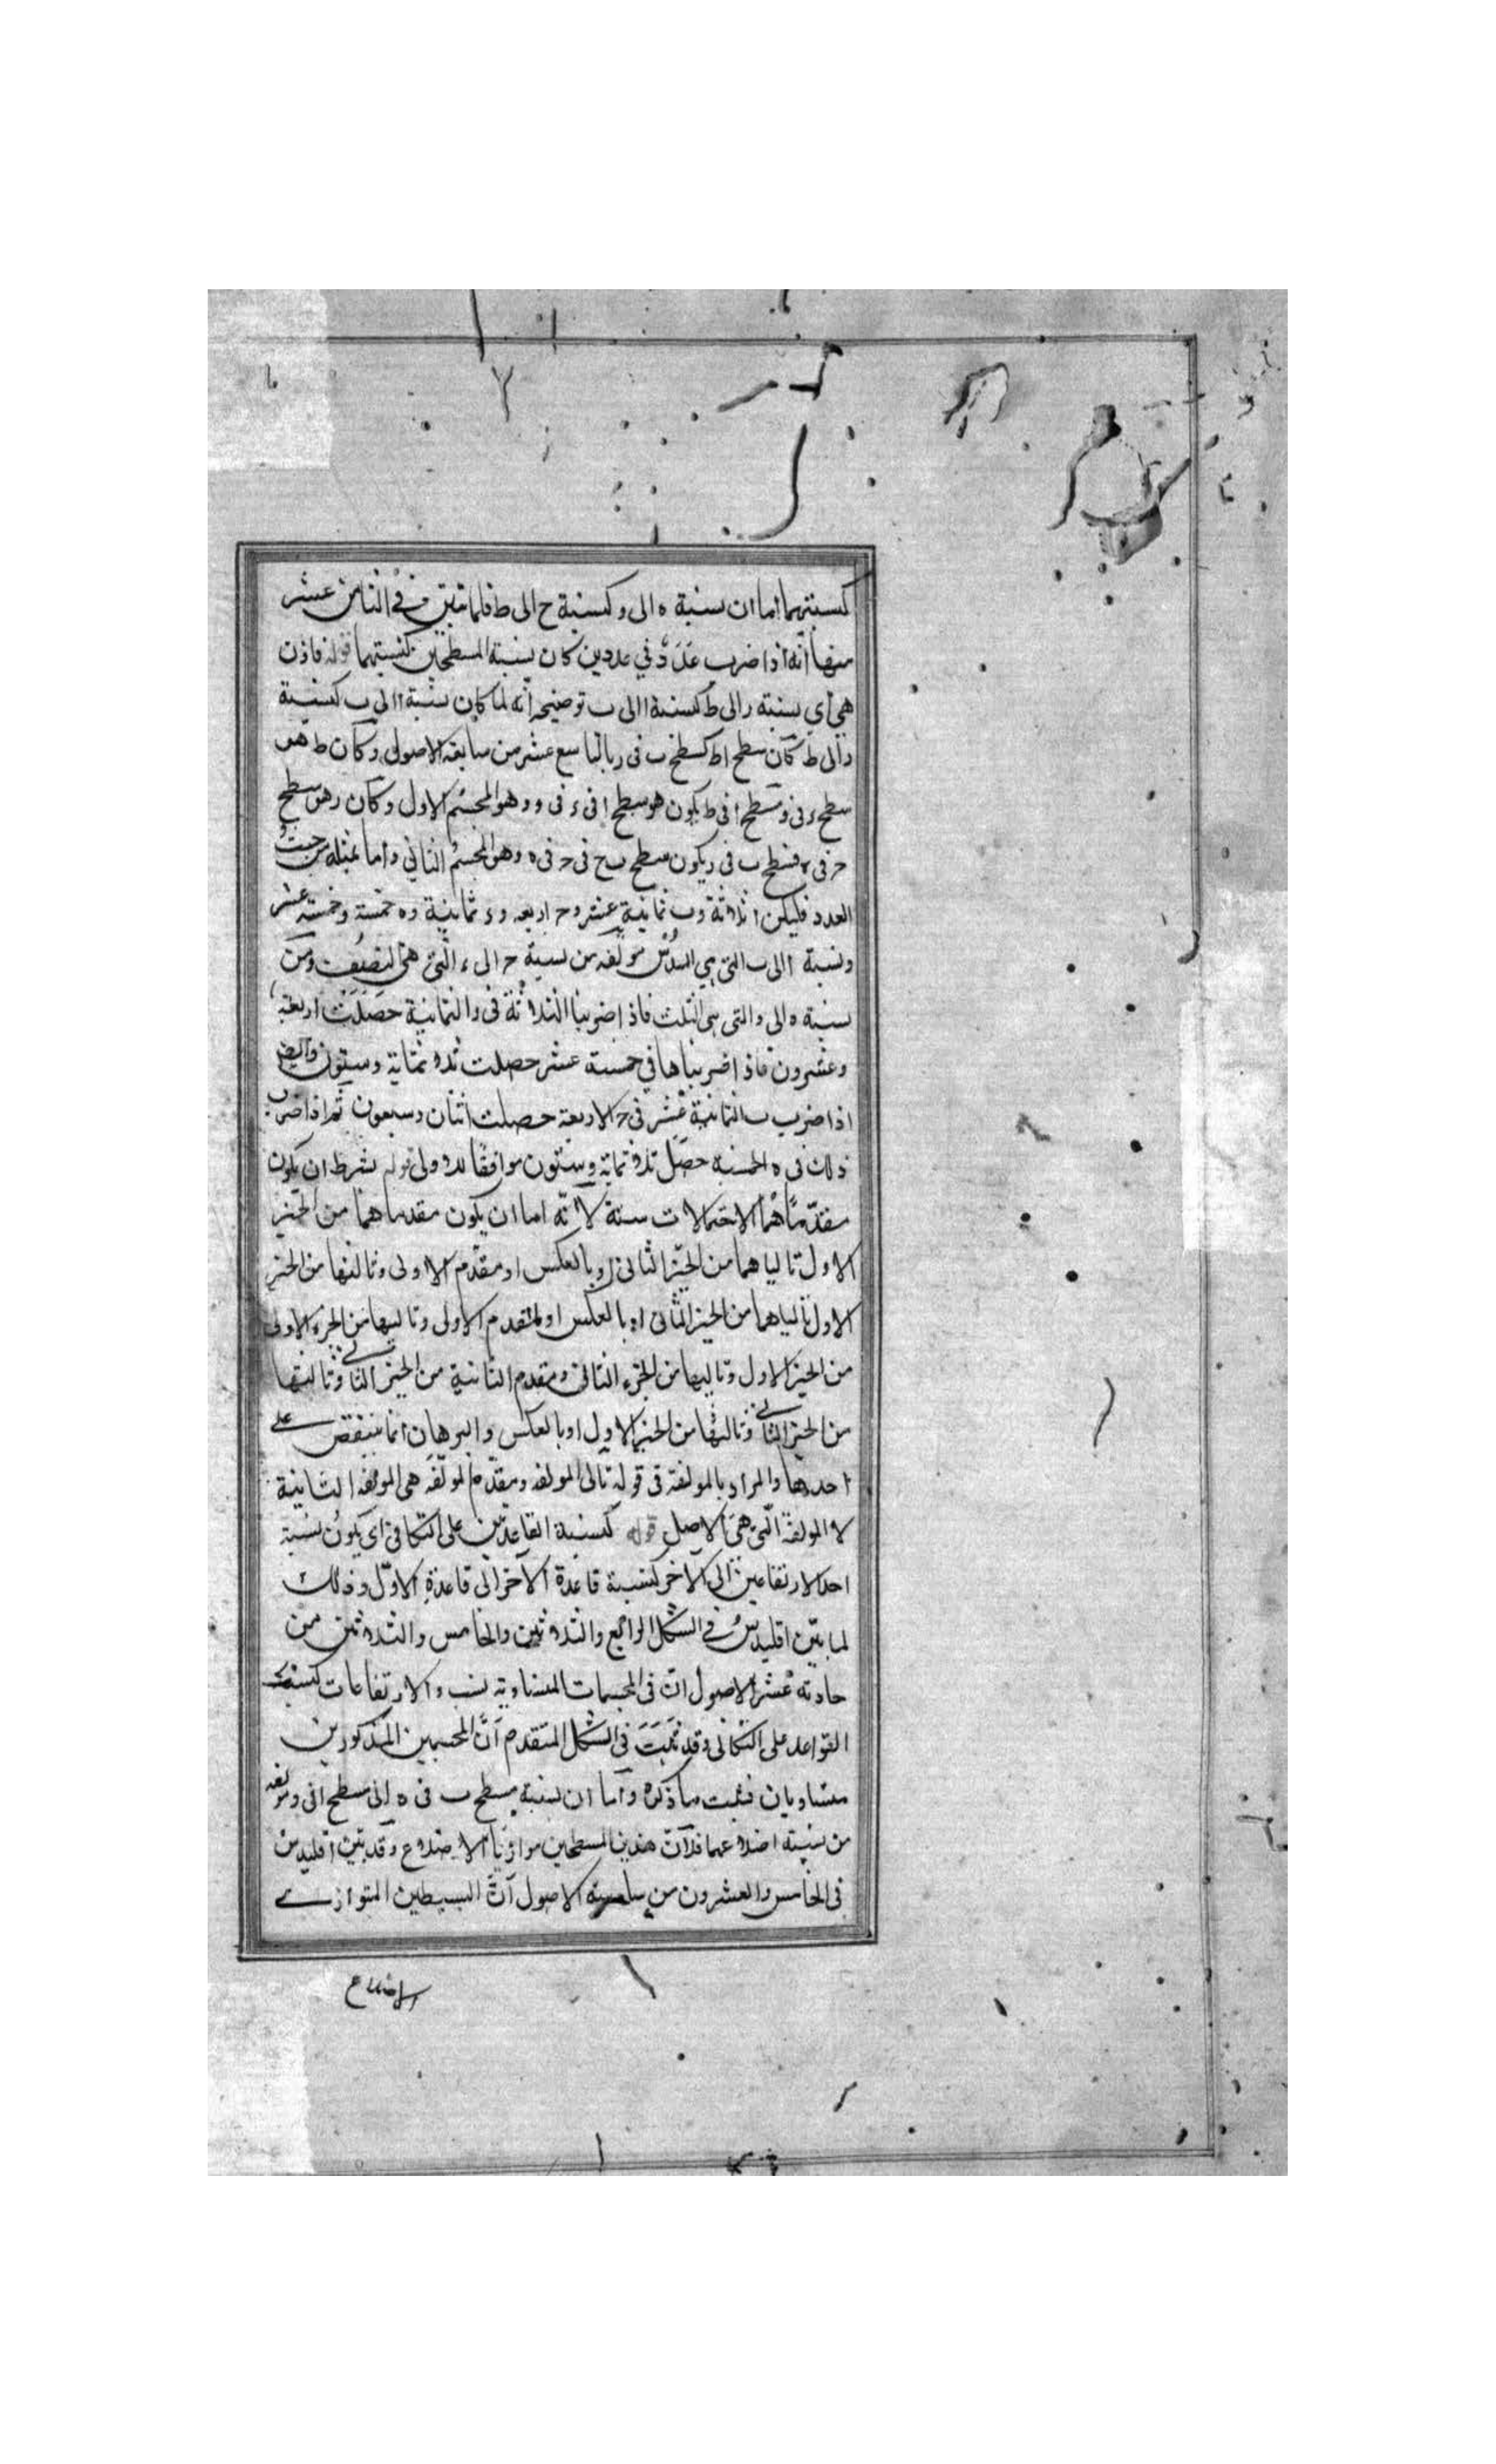 كنسبتهما اما ان نسبة ه الى و كنسبة ح الى ط فلما تبين في الثامن عشر
منها انه اذا ضرب عدد في عددين كان نسبة المسطحين كنسبتهما قوله فاذن
هي اي نسبة ر الى ط كنسبة ا الى ب توضيحه انه لما كان نسبة ا الى ب كنسبة
ر الى ط كان سطح ا ط كسطح ب فى ر بالتاسع عشر من سابعة الاصول وكان ط هو
سطح ء فى و فسطح ا فى ط يكون هو سطح ا فى ء فى و وهو المجسم الاول وكان ر هو سطح
ح فى ه فسطح ب فى ر يكون سطح ب ح فى ح فى ه وهو المجسم الثاني واما تمثيله من حيث
العدد فليكن ا ثلاثة و ب ثمانية عشر و ح اربعه و ء ثمانية و ه خمسة و خمسة عشر
ونسبة ا الى ب التى هي السدس مولفه من نسبة ح الى ء التى هى النصف ومن
نسبة ه الى و التى هى الثلث فاذا ضربنا الثلاثة فى و الثمانية حصلت اربعة
وعشرون فاذا ضربناها في خمسة عشر حصلت ثلاثمائة وستون وايضا
اذا ضرب ب الثمانية عشر فى ح الاربعة حصلت اثنان وسبعون ثم اذا ضرب
ذلك فى ه الخمسة حصل ثلاثمائة وستون موافقا للاولى قوله بشرط ان يكون
مقدماهما الاحتمالات ستة لانه اما ان يكون مقدماهما من الحيز
الاول تالياهما من الحيز الثانى او بالعكس او مقدم الاولى وتاليها من الحيز
الاول تالياهما من الحيز الثانى او بالعكس او لمقدم الاولى وتاليها من الجزء الاولى
من الحيز الاول وتاليها من الجزء الثانى ومقدم الثانية من الحيز الثانى وتاليتها
من الحيز الثانى وتاليها من الحيز الاول او بالعكس والبرهان انما ينتقض على
احدها والمراد بالمولفة فى قوله تالى المولفه ومقدم المولفه هى المولفه الثانية
لا المولفة التى هى الاصل قوله كنسبة القاعدتين على التكافى اى يكون نسبة
احد الارتفاعين الى الاخر كنسبة قاعدة الاخر الى قاعدة الاول وذلك
لما بيّن اقليدس فى الشكل الرابع والثلاثين والخامس والثلاثين من
حادية عشر الاصول ان فى المجسمات المتساوية نسب الارتفاعات كنسبة
القواعد على التكافى وقد ثبت فى الشكل المتقدم ان المجسمين المذكورين
متساويان فثبت ما ذكره واما ان نسبة مسطح ب فى ه الى سطح ا فى و مولفه
من نسبة اضلاعهما فلان هذين المسطحين موازيا الاضلاع وقد بين اقليدس
فى الخامس والعشرون من سادسة الاصول ان البسيطين المتوازى
الاضلاع